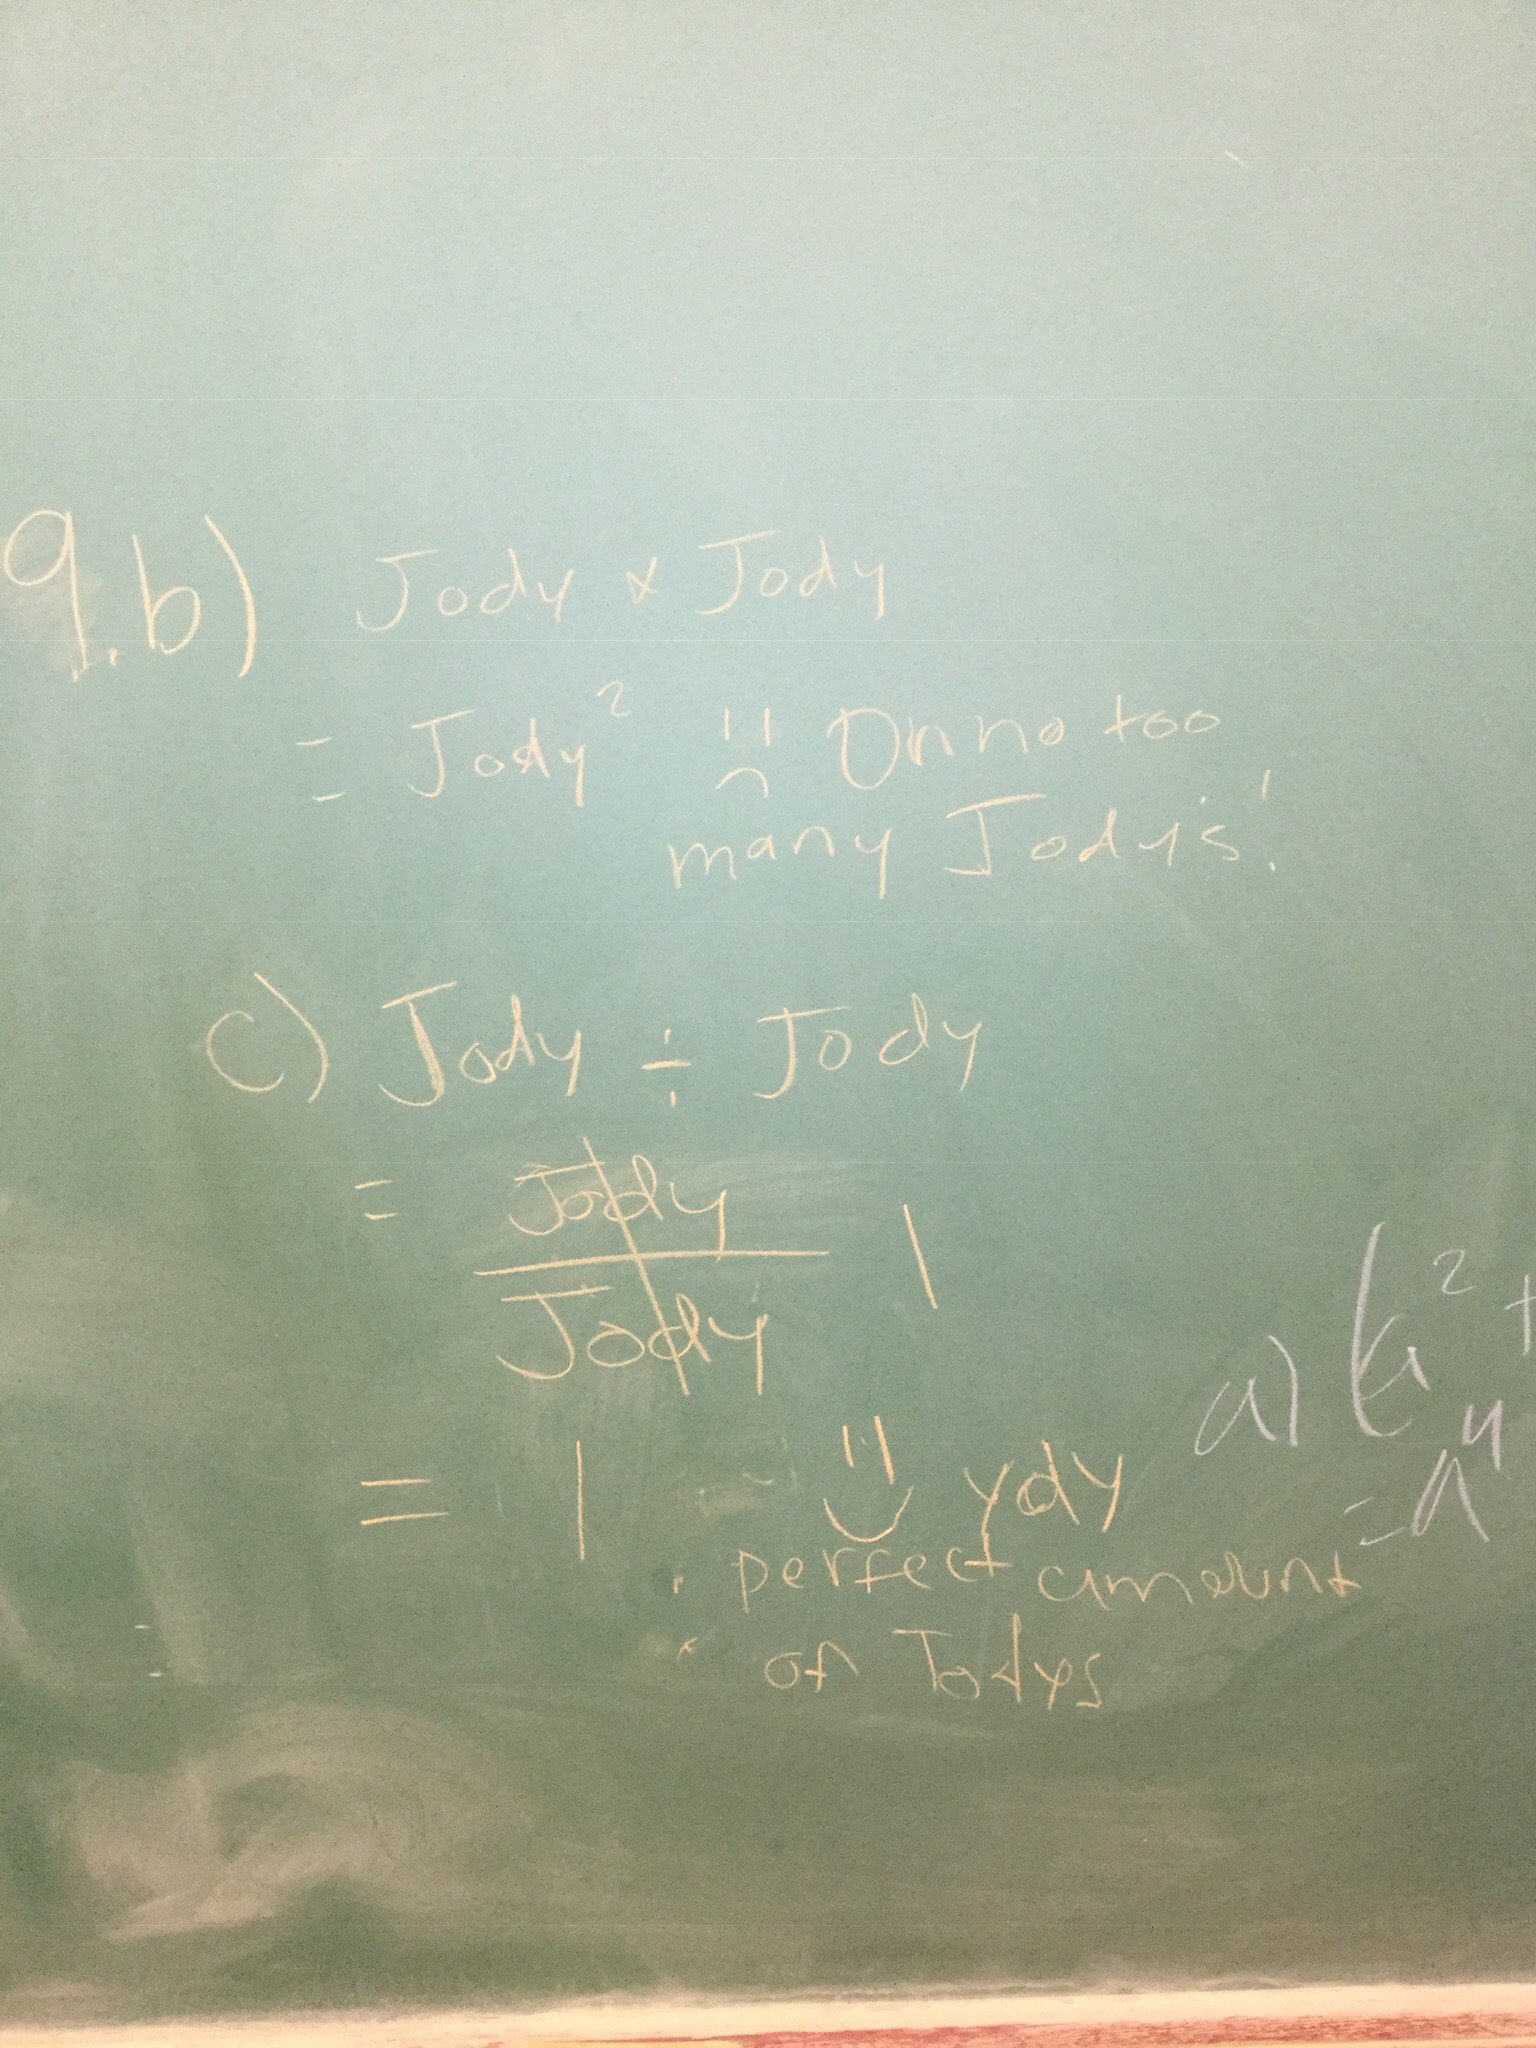 9.b) Jody x Jody
= Jody² :( Oh no too
many Jody's!
c) Jody ÷ Jody
= Jody 1
Jody
= 1 :) ydy
perfect amount
of Jodys
a) (a² +
= a⁴